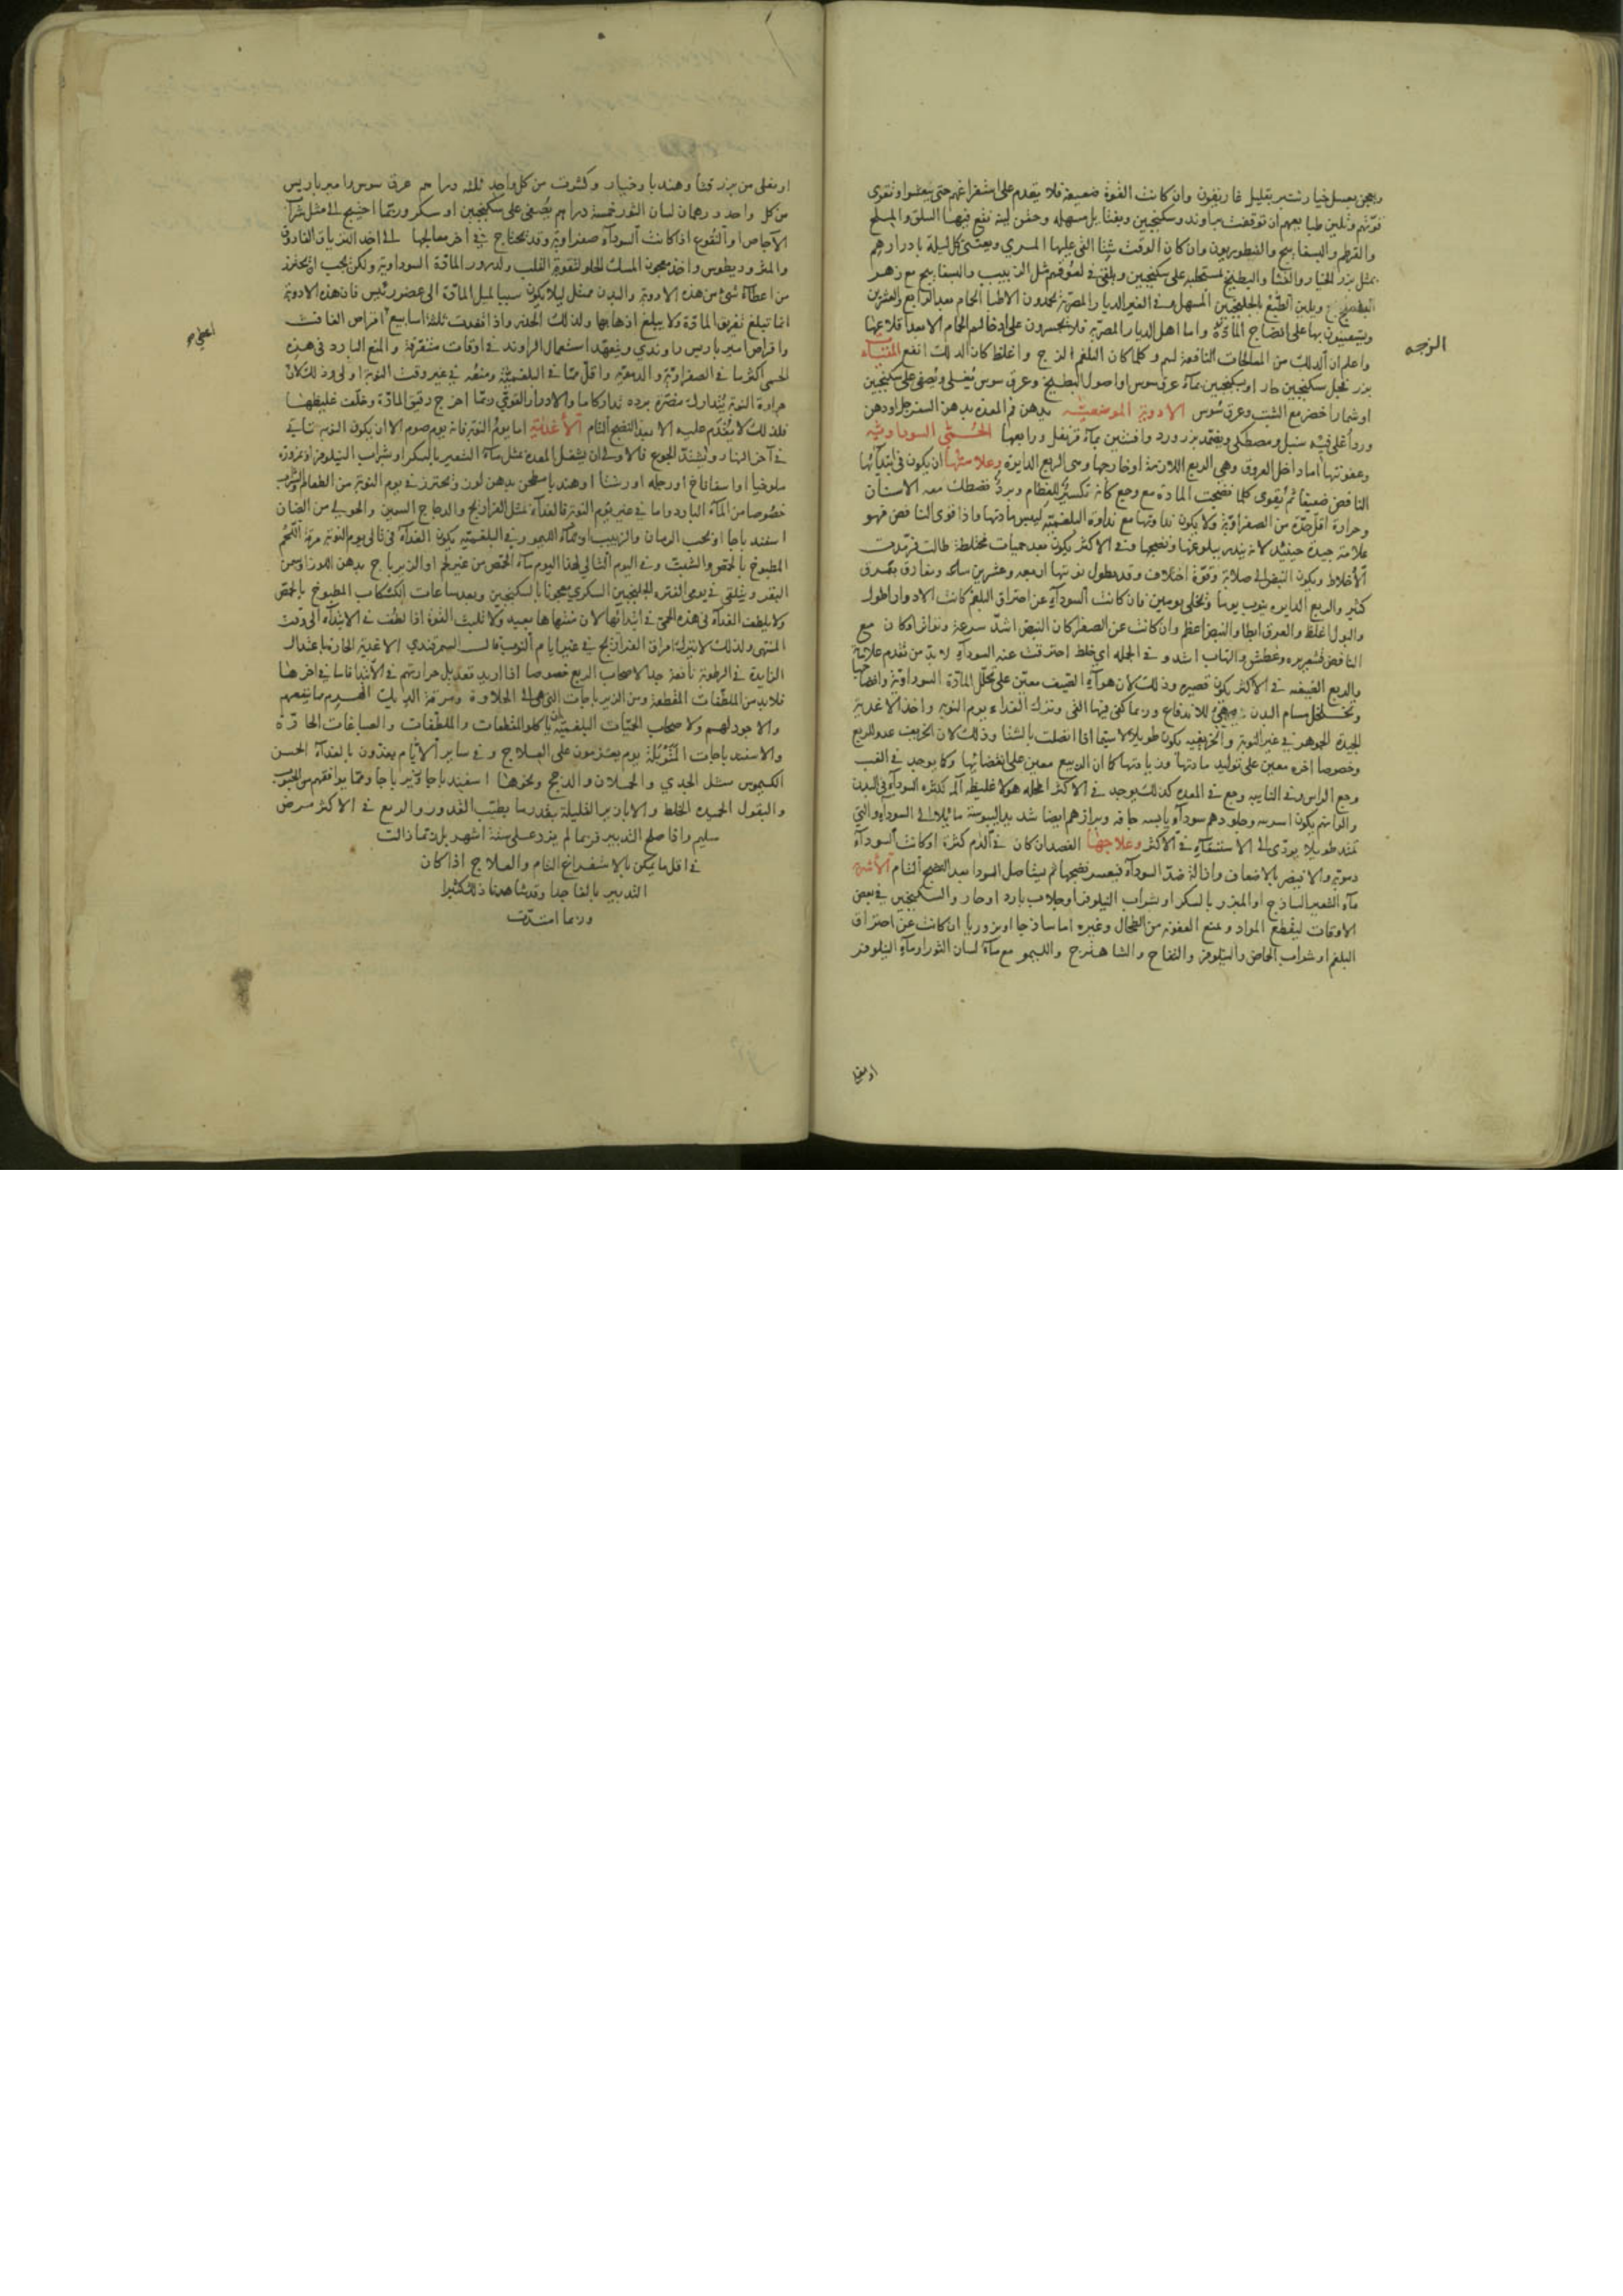 ويعجن بعسل خيار شنبر بقليل غاريقون وان كانت القوة ضعيفة فلا يقدم على استفراغهم حتى ينعشوا وتقوى
قوتهم وتلين طبايعهم ان توقفت براوند وسكنجبين وبفتايل مسهله وحقن لينة يقع فيها السلق والملح
والقرطم والبسفايج والقنطوريون وان كان الوقت شتا القى عليها المري ويعتنى كل ليلة بادرارهم
بمثل بزر الخيار والقثا والبطيخ مستحلبه على سكنجبين ويلقى في لعوقهم مثل الزبيب والبسفايج مع زهر
البنفسج ويلين الطبع بالجلنجبين المسهل وفي الغير الديار المصرية يحمدون الاطبا الحمام بعد الرابع والعشرين
ويستعينون بها على انضاج المادة واما اهل الديار المصرية فلا يجسرون على ادخالهم الحمام الا بعد اقلاعها
واعلم ان الدلك من المعالجات النافعة لهم وكلما كان البلغم الزج واغلظ كان الدلك انفع المقيآت
بزر فجل سكنجبين حار او سكنجبين بماء عرق سوس او اصول البطيخ وعرق سوس يغلى ويصفى على سكنجبين
او شمار اخضر مع الشبت وعرق سوس الادوية الموضعيّه يدهن فم المعده بدهن السفرجل او دهن
ورد اغلى فيه سنبل ومصطكى ويضمد بزر ورد وافسنتين بماء قرنفل ورابعها الحمّى السوداويه
وعفونتها اما داخل العروق وهي الربع اللازمة او خارجها وهي الربع الدايره وعلامتها ان يكون في ابتدآئها
النافض ضعيفا ثم يقوى كلما نضجت المادة مع وجع كانه تكسير للعظام وبرد تصطك معه الاسنان
وحرارة اقل حدّة من الصفراوية ولا يكون نداوتها مع نداوة البلغمية ليبس مادتها واذا قوى النافض فهو
علامة جيدة حينئذ لانه ينذر ببلوغها ونضجها وفي الاكثر يكون بعد حميات مختلطة طالت فرمدت
الاخلاط ويكون النبض الى صلابة وقوة اختلاف وقد يطول نوبتها اربعه وعشرين ساعه وتفارق بعرق
كثير والربع الدايره ينوب يوما وتخلى يومين فان كانت السودآء عن احتراق البلغم كانت الادوار اطول
والبول اغلظ والعرق ابطا والنبض اعظم وان كانت عن الصفرا كان النبض اشد سرعة وتواتر وكان مع
النافض قشعريره وعطش والتهاب اشد وفي الجمله اي خلط احترقت عنه السودآء لا بد من تقدم علاماته
والربع الصيفيه في الاكثر يكون قصيره وذلك لان هوآء الصيف معين على تحلل المادة السوداوية وانضاجها
وتخلخل مسام البدن للاندفاع وربما كفى فيها القى وترك الغداء يوم النوبه واخذ الاغدية
الجيدة الجوهر في غير النوبة والخريفيه يكون طويلا لا سيما اذا اتصلت بالشتا وذلك لان الخريف عدو للربع
وخصوصا اخره معين على توليد مادتها وزيادتها كما ان الربيع معين على انقضائها وكما يوجد في الغب
وجع الراس وفي النايبه وجع في المعده كذلك يوجد في الاكثر
والوانهم يكون اسربيه وجلودهم سودآء يابسه جافه وبرازهم ايضا شديد اليبوسة مائلا الى السوداء والتي
تمتد طويلا يودّى الى الاستسقآء في الاكثر وعلاجها الفصد ان كان في الدم كثرة او كانت السودآء
دموية والا فيضر بالاضعاف واذالة ضد السودآء فيعسر نضجها ثم يستاصل السودا بعد النضج التام الأشربة
مآء الشعير الساذج او المبزر بالسكر او شراب النيلوفر او جلاب بارد او حار والسكنجبين في بعض
الاوقات ليقطع المواد ويمنع العفونه من الطحال وغيره اما ساذجا او بزوريا ان كانت عن احتراق
البلغم او شراب الحماض والنيلوفر والتفاح والشاهترج والليمو مع مآء لسان الثور او مآء النيلوفر
الوجه
او يغلى
او يغلى من بزر قثا وهندبا وخيار وكشوت من كل واحد ثلثه دراهم عرق سوس وامبرباريس
من كل واحد درهمان لسان الثور خمسة دراهم يُصفى على سكنجبين او سكر وربّما احتيج الى مثل شراب
الاجاص او النقوع اذا كانت السودآء صفراوية وقد يحتاج في آخر معالجها الى اخذ الترياق الفاروق
والمثروديطوس واخذ معجون المسك الحلو لتقوية القلب ولدرور المادة السوداوية ولكن يجب ان يحترز
من اعطآء شئ من هذه الادوية والبدن ممتلى ليلا يكون سببا لميل المادّة الى عضو رئيس فان هذه الادوية
انما تبلغ تفريق المادة ولا يبلغ اذهابها ولذلك الحقنه واذا انقضت ثلثة اسابيع اقراص الغافت
واقراص امبرباريس راوندي ويتعهد استعمال الراوند في اوقات متفرقة والمنع البارد في هذه
الحمى اكثر ما في الصفراوية والدمويه واقل ممّا في البلغميّة ومنعه في غير وقت النوبة اولى وذلك لان
حرارة النوبة يتدارك مضرّة برده تداركا ما والادرار القوي ربما اخرج رقيق المادّة وخلّف غليظها
فلذلك لا يُقدم عليه الا بعد النضج التام الأغذية اما يوم النوبة فانه يوم صوم الا ان يكون النوبه تاتي
في آخر النهار ويشتدّ الجوع فالاولى ان يشغل المعده بمثل مآء الشعير بالسكر او بشراب النيلوفر او مزوره
ملوخيا او اسفاناخ او رجله او رشتا او هندبا مطجن بدهن لوز ويحترز في يوم النوبة من الطعام والشراب
خصوصا من المآء البارد واما في غير يوم النوبة فالغدآء بمثل الفراريج والدجاج السمين والحولي من الضان
اسفيدباجا او بحب الرمان والزبيب او بمآء الليمو وفي البلغميّه يكون الغدآء في تالى يوم النوبة مرقة اللحم
المطبوخ بالحمص والشبت وفي اليوم التالي لهذا اليوم مآء الحمّص من غير لحم او الزيرباج بدهن اللوز او سمن
البقر ويلقى في يومى الفتره الجلنجبين السكري معجونا بالسكنجبين وبعد ساعات الكشكاب المطبوخ بالحمص
ولا يلطف الغدآء في هذه الحمى في ابتدآئها لان منتهاها بعيد ولا تلبث القوة اذا لطف في الابتدآء الى وقت
المنتهى ولذلك لا يترك امراق الفراريج في غير ايام النوب قال السمرقندي الاغدية الحارة باعتدال
الزايدة في الرطوبة نافعة جدا لاصحاب الربع خصوصا اذا اريد تعديل حرارتهم في الابتدا فاما في اخرها
فلا بد من الملطفات المقطعة ومن الزيرباجات التي هي الى الحلاوة ومرقة الديك الهرم مما ينفعهم
والاجود لهم ولاصحاب الحميّات البلغميّة ان ياكلوا المقطعات والملطّفات والصباغات الحارّه
والاسفيدباجات المُتَوبلة يوم يعتزمون على العلاج وفي ساير الأيّام يغدّون بالغدآء الحسن
الكيموس مثل الجدي والحملان والدجج ونحوها اسفيدباجا وزيرباجا ومما يوافقهم من الحبوب
والبقول الحميده الخلط والابازير القليلة بقدر ما يطيب القدور والربع في الاكثر مرض
سليم واذا صلح التدبير فربما لم يزد على ستة اشهر بل ربّما زالت
في اقل ما يمكن بالاستفراغ التام والعلاج اذا كان
التدبير بالغا جدا وقد شاهدنا ذلك كثيرا
وربما امتدّت